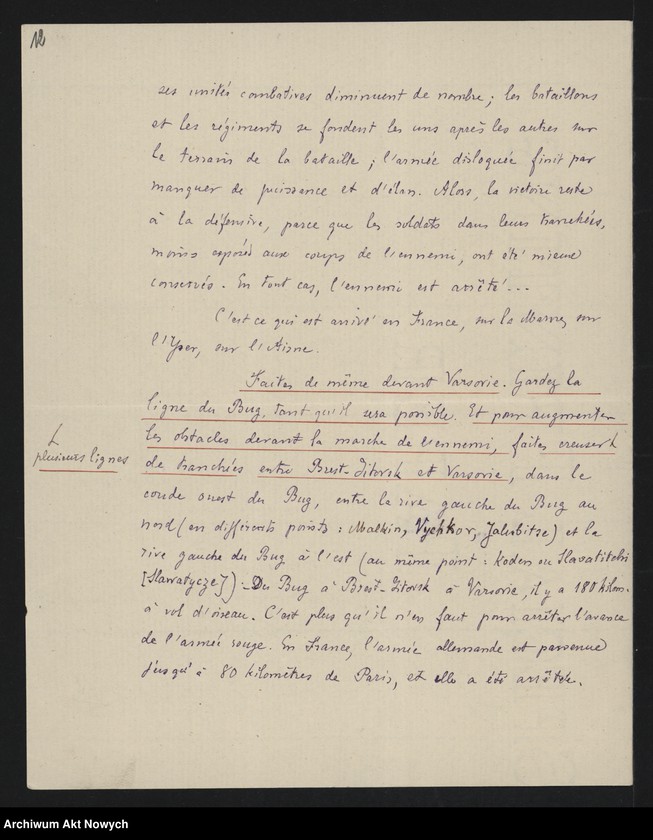 12
ses unités combatives diminuent de nombre ; les bataillons
et les régiments se fondent les uns après les autres sur
le terrain de la bataille ; l'armée disloquée finit par
manquer de puissance et d'élan. Alors, la victoire reste
à la défensive, parce que les soldats dans leurs tranchées,
moins exposés aux coups de l'ennemi, ont été mieux
conservés. En tout cas, l'ennemi est arrêté...
C'est ce qui est arrivé en France, sur la Marne, sur
l'Yser, sur l'Aisne.
Faites de même devant Varsovie. Gardez la
ligne du Bug, tant qu'il sera possible. Et pour augmenter
les obstacles devant la marche de l'ennemi, faites creuser
plusieurs lignes
de tranchées entre Brest-Litovsk et Varsovie, dans le
coude ouest du Bug, entre la rive gauche du Bug au
nord (en différents points : Malkin, Vychkov, Jakubitse) et la
rive gauche du Bug à l'est (au même point : Koden ou Slavatitchi
[Slawatycze]). Du Bug à Brest-Litovsk à Varsovie, il y a 180 kilom.
à vol d'oiseau. C'est plus qu'il n'en faut pour arrêter l'avance
de l'armée rouge. En France, l'armée allemande est parvenue
jusqu'à 80 kilomètres de Paris, et elle a été arrêtée.
Archiwum Akt Nowych